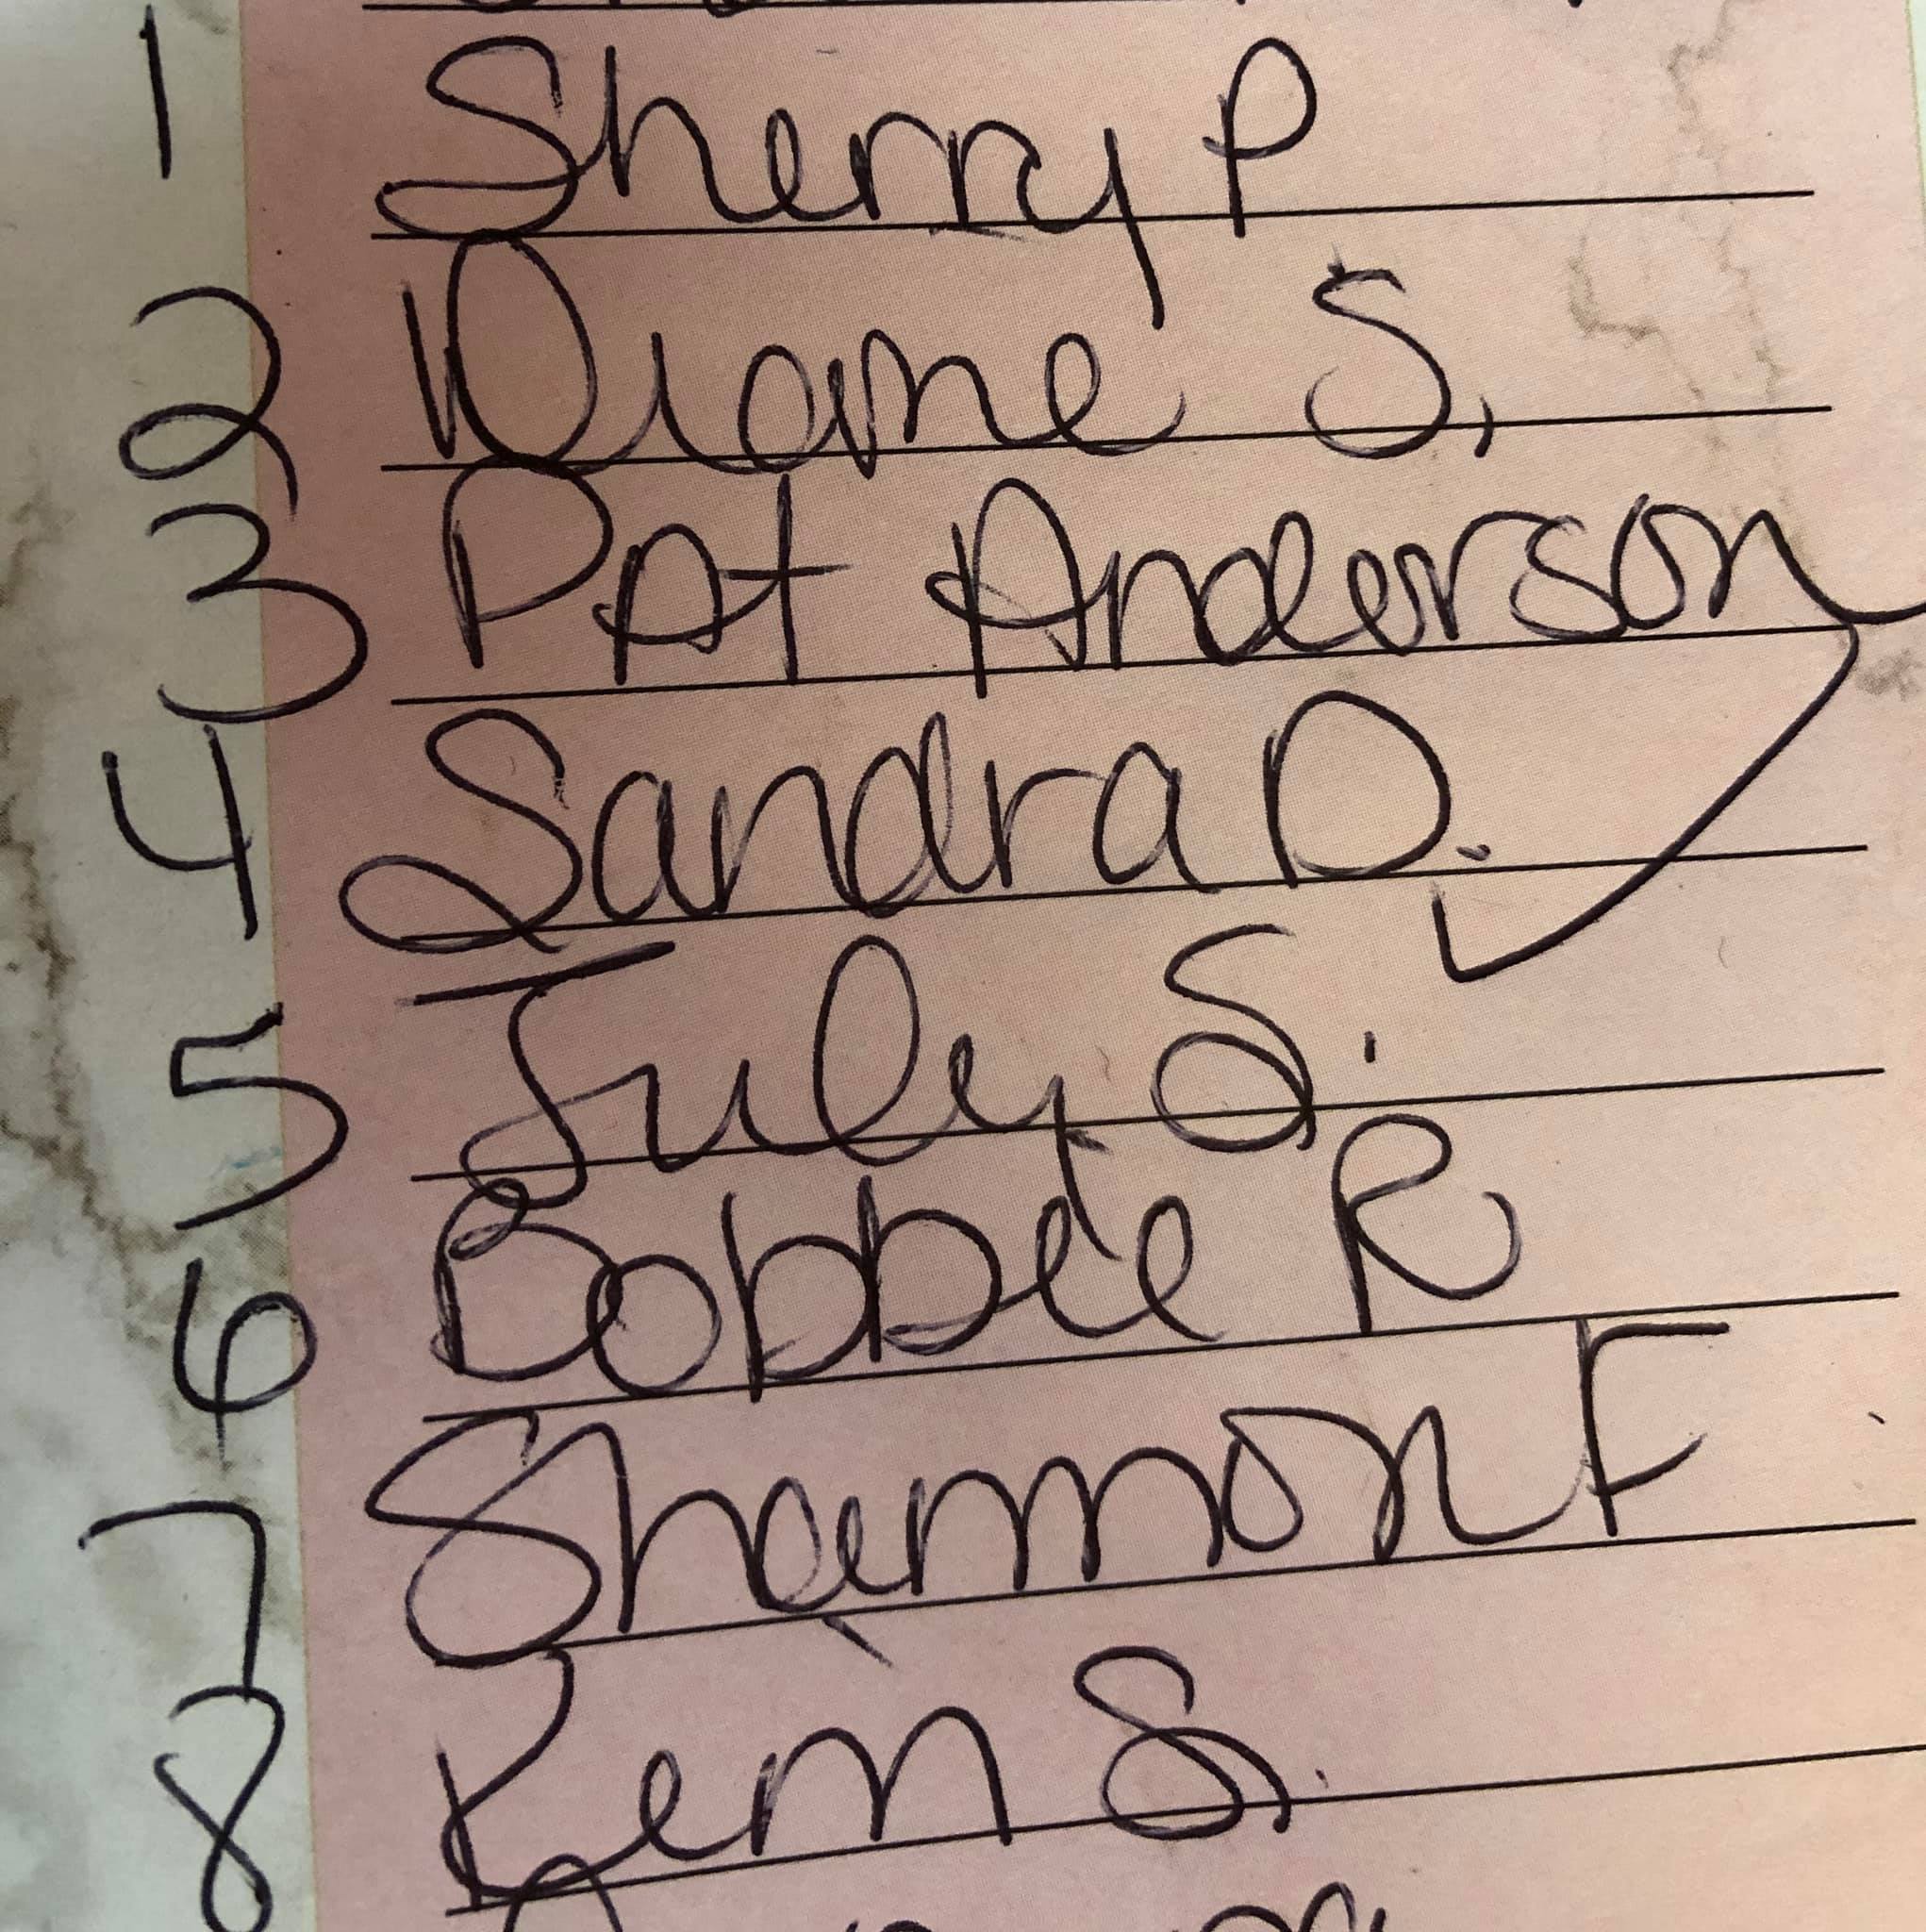 1 Sherry P
2 Diane S.
3 Pat Anderson
4 Sandra D.
5 July S.
6 Bobbie R
7 Shannon F
8 Kem S.